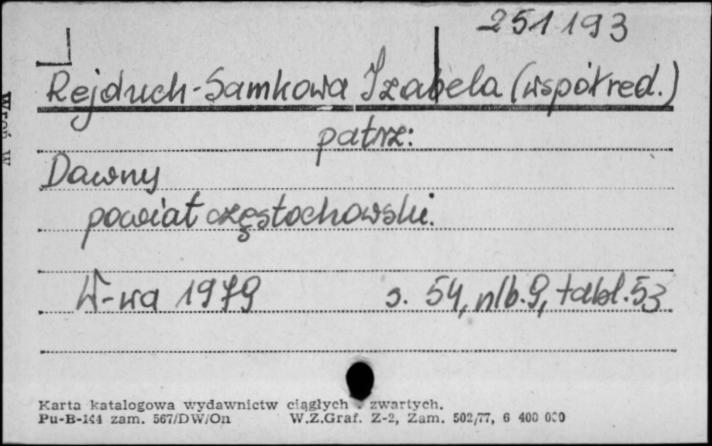 251193
Rejduch-Samkowa Izabela (współred.)
patrz:
Dawny
powiat częstochowski.
W-wa 1979 s. 54, nlb. 9, tabl. 53
Karta katalogowa wydawnictw ciągłych zwartych.
Pu-B-144 zam. 567/DW/On W.Z.Graf. Z-2, Zam. 502/77, 6 400 000